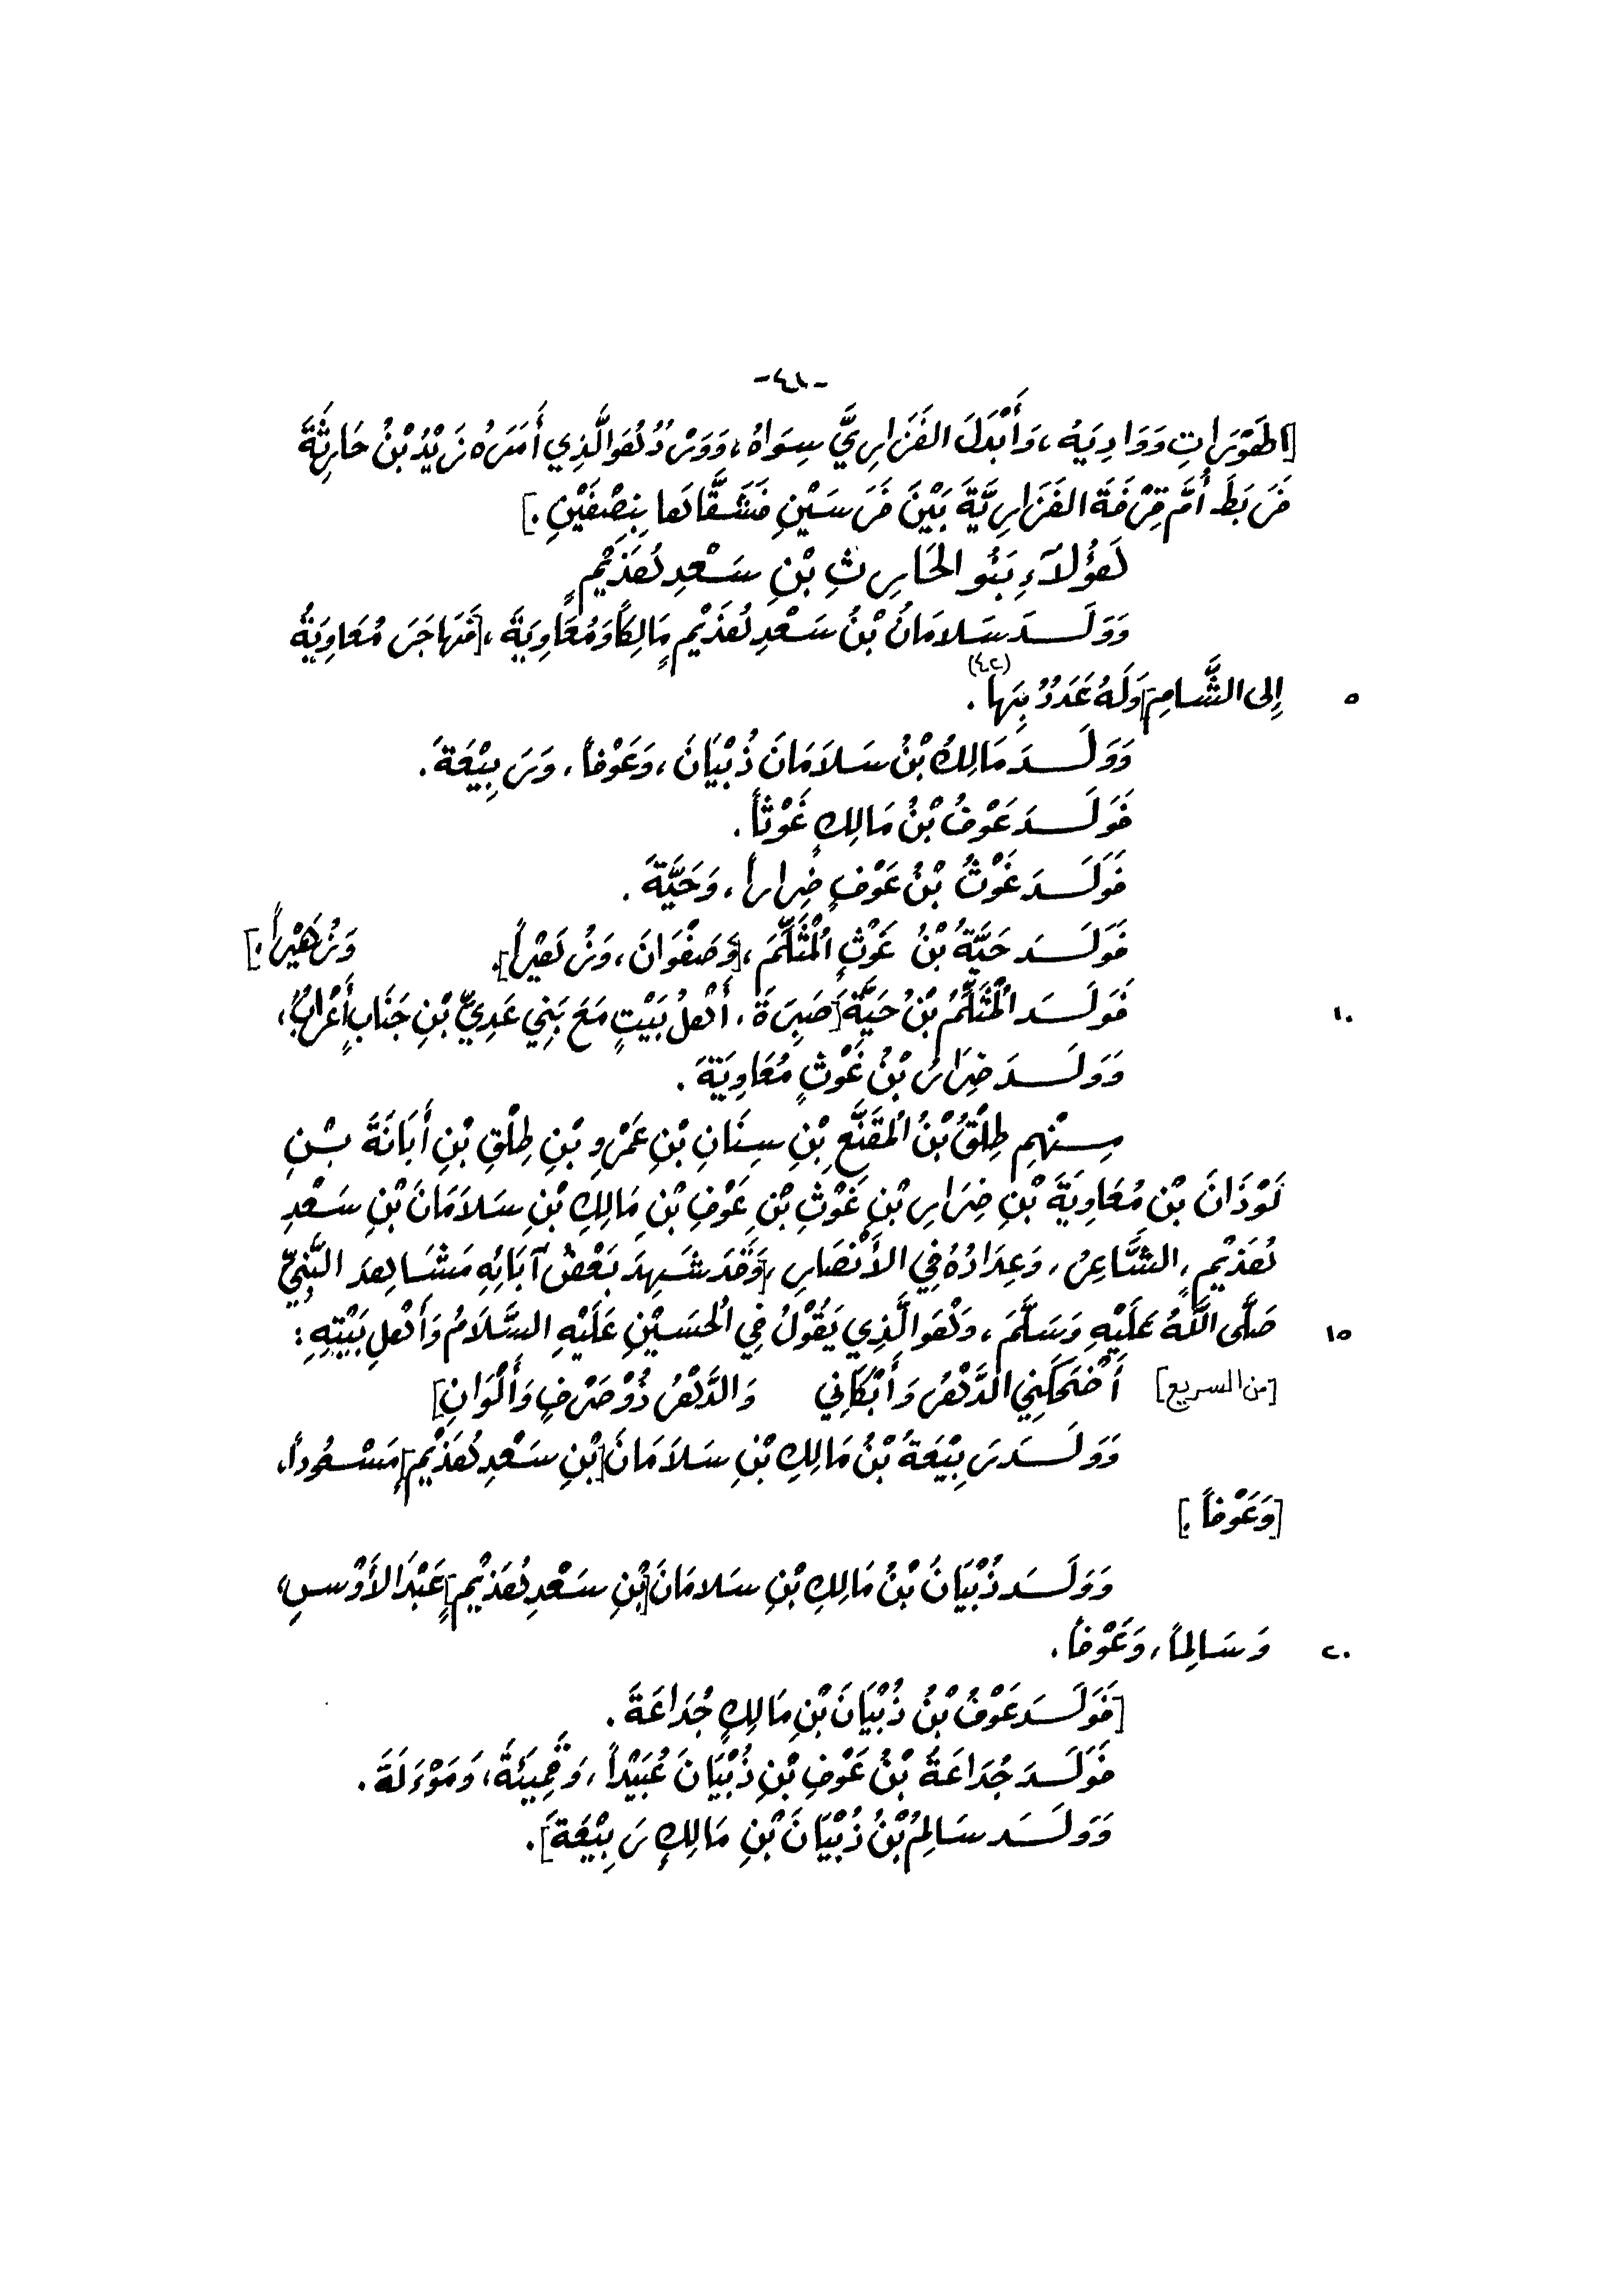 -٤١-
وَوَادِيَهُ، وَأَبْدَلَ الفَزَارِيَّ سِوَاهُ، وَوَرْدُ هُوَ الَّذِي أَمَرَهُ زَيْدُ بْنُ حَارِثَةَ
فَرَبَطَ أُمَّ قِرْفَةَ الفَزَارِيَّةَ بَيْنَ فَرَسَيْنِ فَشَقَّاهَا بِنِصْفَيْنِ.]
هَؤُلَاءِ بَنُو الحَارِثِ بْنِ سَعْدِ هُذَيْمٍ
وَوَلَدَ سَلَامَانُ بْنُ سَعْدِ هُذَيْمٍ مَالِكاً وَمُعَاوِيَةَ، [فَهَاجَرَ مُعَاوِيَةُ
٥ إِلى الشَّامِ] وَلَهُ عَدَدٌ بِهَا (٤٢).
وَوَلَدَ مَالِكُ بْنُ سَلَامَانَ ذُبْيَانَ، وَعَوْفاً، وَرَبِيْعَةَ.
فَوَلَدَ عَوْفُ بْنُ مَالِكٍ غَوْثاً.
فَوَلَدَ غَوْثُ بْنُ عَوْفٍ ضِرَاراً، وَحَيَّةَ.
فَوَلَدَ حَيَّةُ بْنُ غَوْثٍ الْمُثَلَّمَ، [وَصَفْوَانَ، وَزُهَيْراً]. وَزُهَيْراً.]
١٠ فَوَلَدَ الْمُثَلَّمُ بْنُ حَيَّةَ [صَبِرَةَ، أَهْلُ بَيْتٍ مَعَ بَنِي عَدِيِّ بْنِ جَنَابٍ أَعْرَابٌ]،
وَوَلَدَ ضِرَارُ بْنُ غَوْثٍ مُعَاوِيَةَ.
مِنْهِم طِلْقُ بْنُ الْمُقَنَّعِ بْنِ سِنَانِ بْنِ عَمْرِو بْنِ طِلْقِ بْنِ أَبَانَةَ بْنِ
لَوْذَانَ بْنِ مُعَاوِيَةَ بْنِ ضِرَارِ بْنِ غَوْثِ بْنِ عَوْفِ بْنِ مَالِكِ بْنِ سَلَامَانَ بْنِ سَعْدِ
هُذَيْمٍ، الشَّاعِرُ، وَعِدَادُهُ فِي الأَنْصَارِ، [وَقَد شَهِدَ بَعْضُ آبَائِهِ مَشَاهِدَ النَّبِيِّ
١٥ صَلَّى اللَّهُ عَلَيْهِ وَسَلَّمَ، وَهُوَ الَّذِي يَقُوْلُ فِي الْحُسَيْنِ عَلَيْهِ السَّلَامُ وَأَهْلِ بَيْتِهِ:
[من السريع] أَضْحَكَنِي الدَّهْرُ وَأَبْكَانِي وَالدَّهْرُ ذُوْ صَرْفٍ وَأَلْوَانِ]
وَوَلَدَ رَبِيْعَةُ بْنُ مَالِكِ بْنِ سَلَامَانَ [بْنِ سَعْدِ هُذَيْمٍ] مَسْعُوداً،
[وَعَوْفاً.]
وَوَلَدَ ذُبْيَانُ بْنُ مَالِكِ بْنِ سَلَامَانَ [بْنِ سَعْدِ هُذَيْمٍ] عَبْدَ الأَوْسِ،
٢٠ وَسَالِماً، وَعَوْفاً.
[فَوَلَدَ عَوْفُ بْنُ ذُبْيَانَ بْنِ مَالِكٍ جُدَاعَةَ.
فَوَلَدَ جُدَاعَةُ بْنُ عَوْفِ بْنِ ذُبْيَانَ عُبَيْداً، وَقَمِيئَةَ، وَمَوْءَلَةَ.
وَوَلَدَ سَالِمُ بْنُ ذُبْيَانَ بْنِ مَالِكٍ رَبِيْعَةَ].